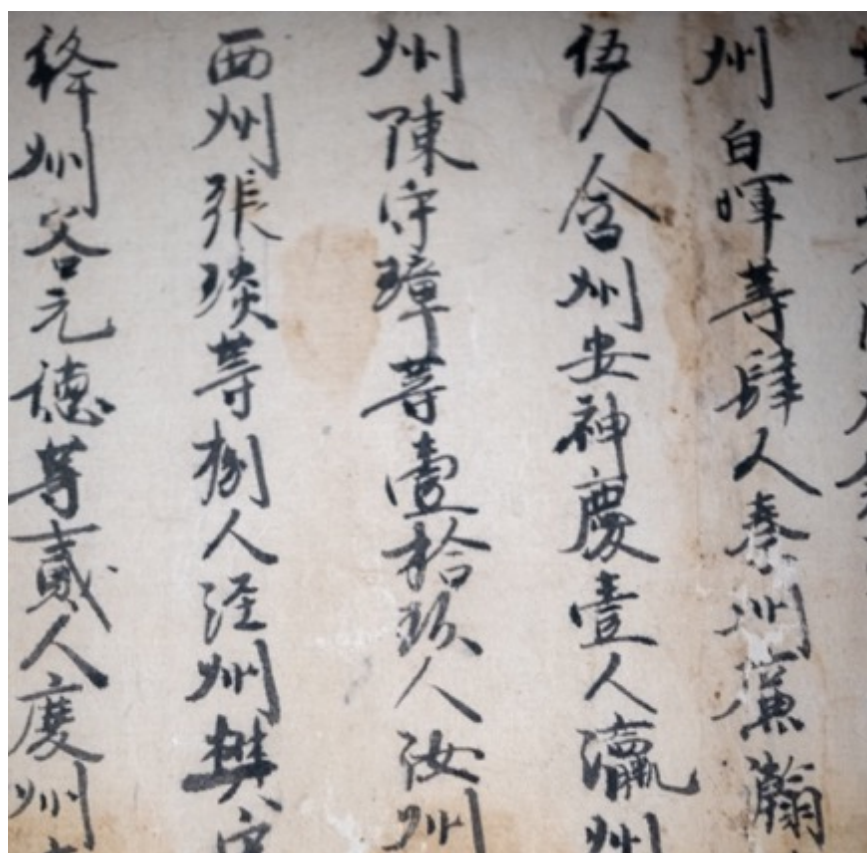 州自暉等肆人秦州廉瀚
伍人含州安神慶壹人瀛州
州陳守璋等壹拾玖人汝州
西州張琰等捌人涇州樊
絳州苔元德等貳人慶州